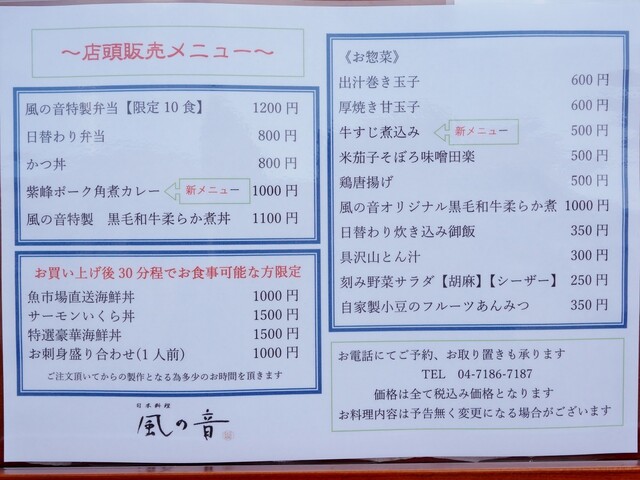 ～店頭販売メニュー～
風の音特製弁当【限定10食】 1200円
日替わり弁当 800円
かつ丼 800円
紫峰ポーク角煮カレー 新メニュー 1000円
風の音特製 黒毛和牛柔らか煮丼 1100円
お買い上げ後30分程でお食事可能な方限定
魚市場直送海鮮丼 1000円
サーモンいくら丼 1500円
特選豪華海鮮丼 1500円
お刺身盛り合わせ(1人前) 1000円
ご注文頂いてからの製作となる為多少のお時間を頂きます
日本料理
風の音
《お惣菜》
出汁巻き玉子 600円
厚焼き甘玉子 600円
牛すじ煮込み 新メニュー 500円
米茄子そぼろ味噌田楽 500円
鶏唐揚げ 500円
風の音オリジナル黒毛和牛柔らか煮 1000円
日替わり炊き込み御飯 350円
具沢山とん汁 300円
刻み野菜サラダ【胡麻】【シーザー】 250円
自家製小豆のフルーツあんみつ 350円
お電話にてご予約、お取り置きも承ります
TEL 04-7186-7187
価格は全て税込み価格となります
お料理内容は予告無く変更になる場合がございます